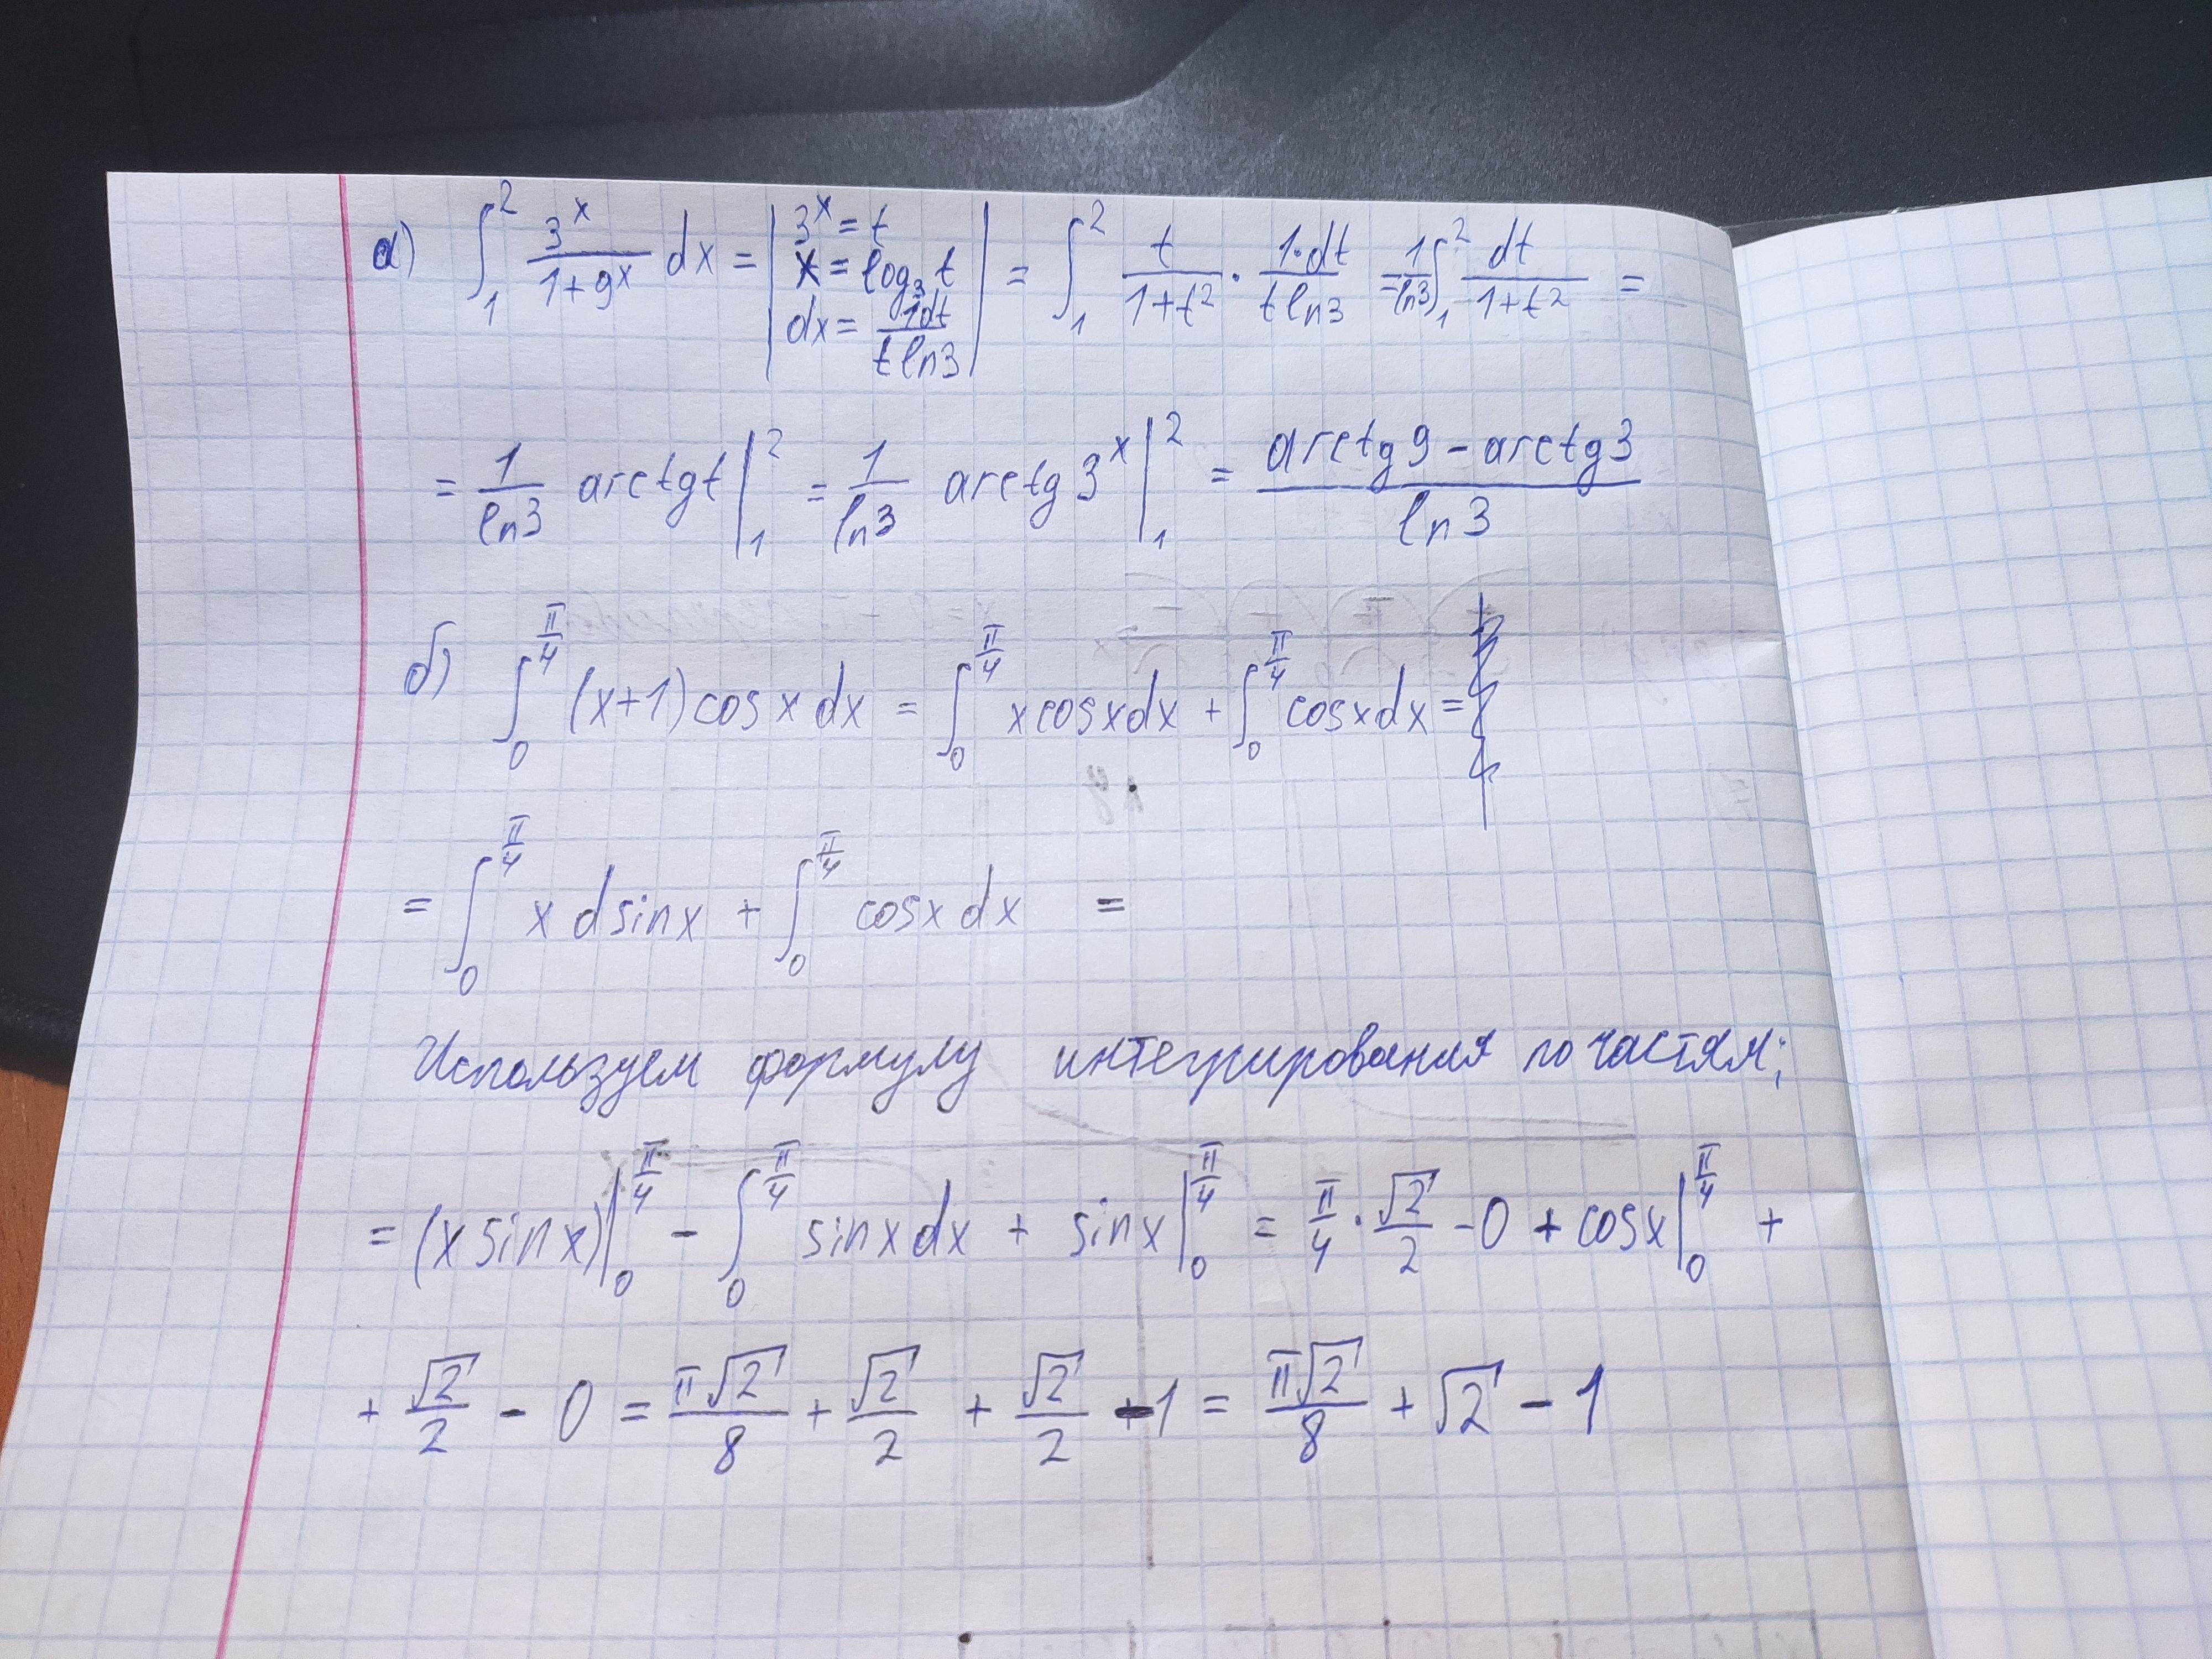 а) ∫₁² 3ˣ/(1+9ˣ) dx = | 3ˣ = t
x = log₃ t
dx = 1dt/(t ln3) | = ∫₁² t/(1+t²) · 1·dt/(t ln3) = 1/ln3 ∫₁² dt/(1+t²) =
= 1/ln3 arctg t |₁² = 1/ln3 arctg 3ˣ |₁² = (arctg 9 - arctg 3)/ln3
б) ∫₀^(π/4) (x+1) cos x dx = ∫₀^(π/4) x cos x dx + ∫₀^(π/4) cos x dx =
= ∫₀^(π/4) x d sin x + ∫₀^(π/4) cos x dx =
Используем формулу интегрирования по частям;
= (x sin x)|₀^(π/4) - ∫₀^(π/4) sin x dx + sin x |₀^(π/4) = π/4 · √2/2 - 0 + cos x |₀^(π/4) +
+ √2/2 - 0 = π√2/8 + √2/2 + √2/2 - 1 = π√2/8 + √2 - 1